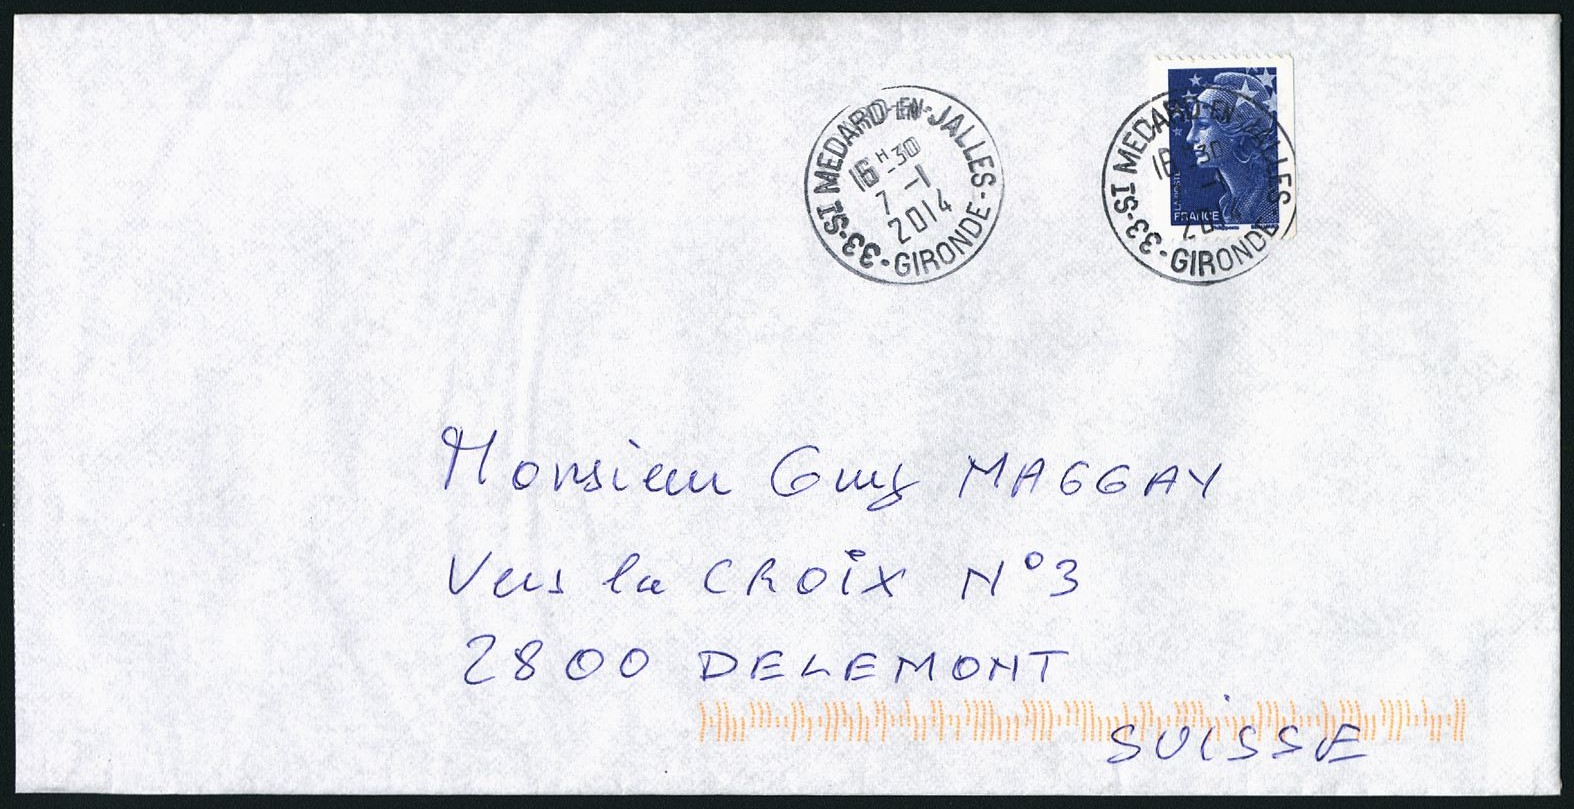 33-ST MEDARD-EN-JALLES-GIRONDE-
16H30
7-1
2014
33-ST MEDARD-EN-JALLES
GIRONDE
16 30
LA POSTE
FRANCE
Monsieur Guy MAGGAY
Vers la CROIX N°3
2800 DELEMONT
SUISSE